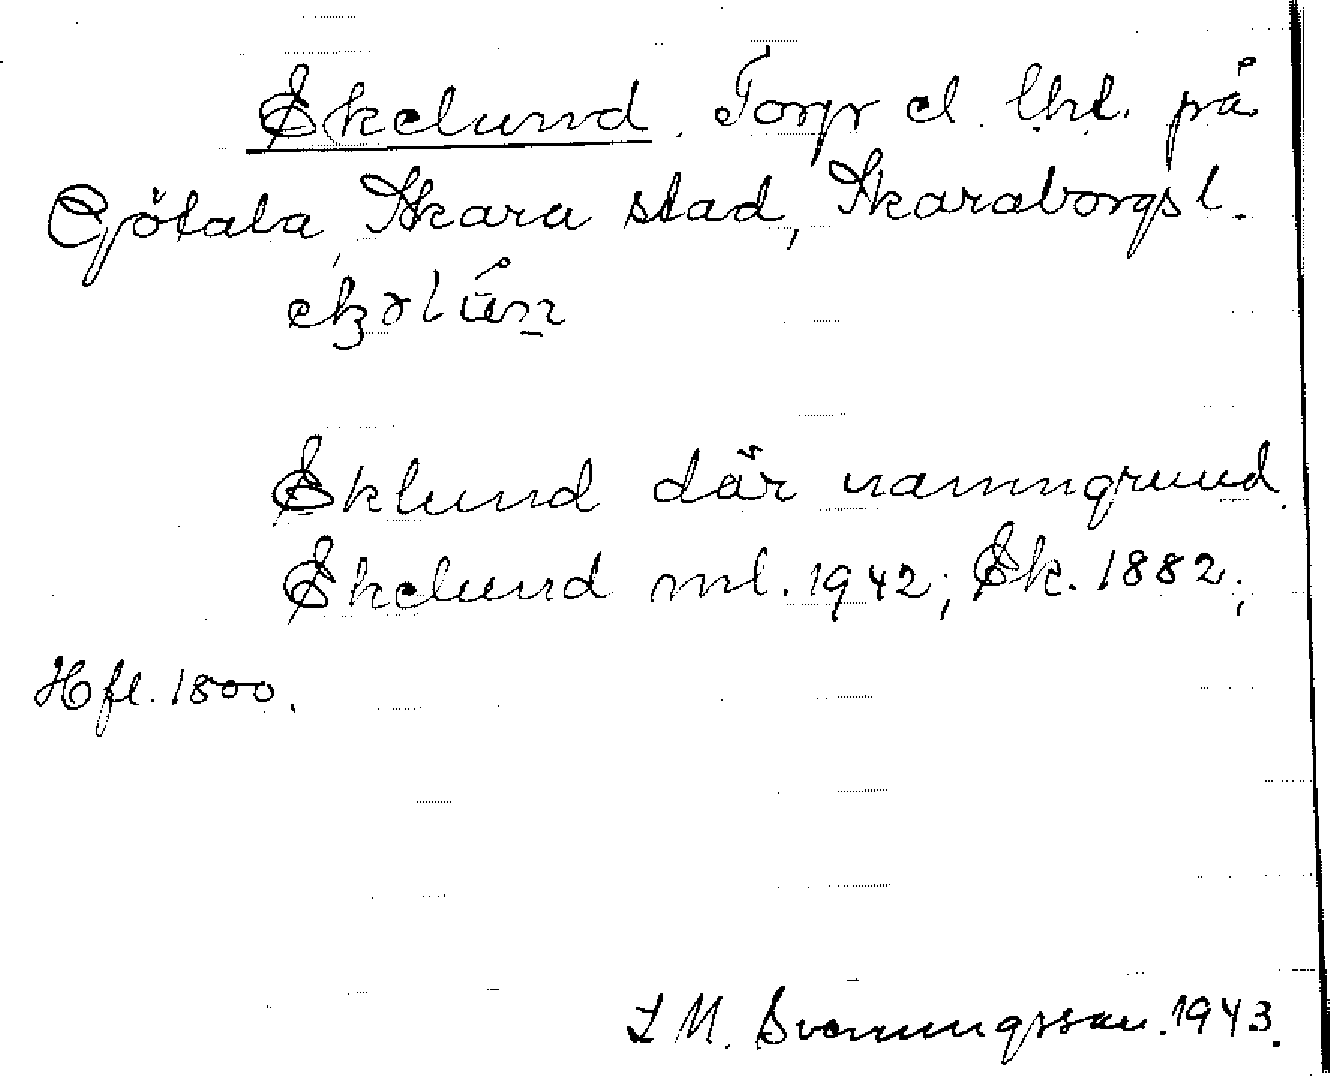 Ekelund. Torp el. lht. på
Götala, Skara stad, Skaraborgs l.
Eklund där namngrund.
Ekelund ml. 1942; Ek. 1882;
Hfl. 1800.
L M. Svenungsson. 1943.